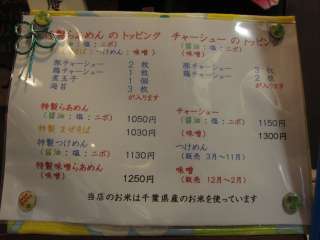 製らあめん の トッピング
(醤油:塩:ニボ)
味噌)
豚チャーシュー 2 枚
鶏チャーシュー 1 枚
煮玉子 1 個
海苔 3 枚
が入ります
特製らあめん 1050円
(醤油:塩:ニボ)
特製 まぜそば 1030円
特製つけめん 1130円
(醤油:塩:ニボ)
特製味噌らあめん 1250円
チャーシュー の トッピング
(醤油:塩:ニボ)
(味噌)
豚チャーシュー 3 枚
鶏チャーシュー 2 枚
が入ります
チャーシュー
(醤油:塩:ニボ) 1150円
(味噌) 1300円
つけめん
(販売 3月〜11月)
味噌
(販売 12月〜2月)
当店のお米は千葉県産のお米を使っています